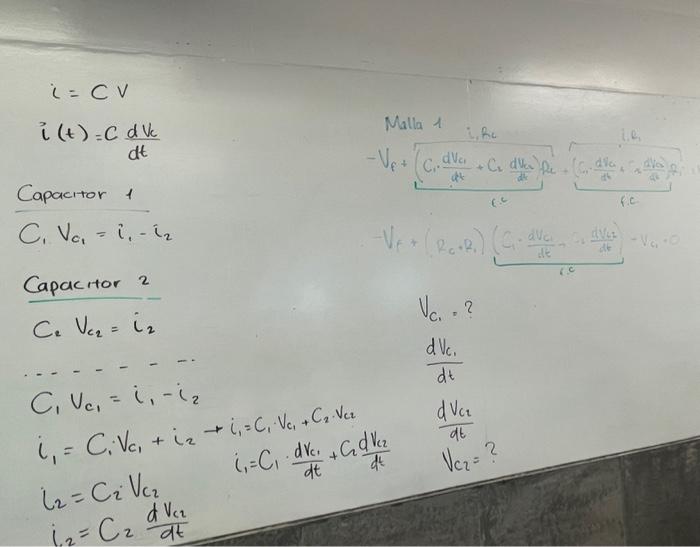 i = C V
i(t) = C dVc/dt
Capacitor 1
C₁ Vc₁ = i₁ - i₂
Capacitor 2
C₂ Vc₂ = i₂
- - - - - - - -
C₁ Vc₁ = i₁ - i₂
i₁ = C₁ Vc₁ + i₂ → i₁ = C₁·Vc₁ + C₂·Vc₂
i₁ = C₁ · dVc₁/dt + C₂ dVc₂/dt
i₂ = C₂ Vc₂
i₂ = C₂ dVc₂/dt
Malla 1
i₁Rc i₁R₁
-Vf + (C₁· dVc₁/dt + C₂ dVc₂/dt) Rc + (C₁· dVc₁/dt + C₂ dVc₂/dt) R₁
f.c f.c
-Vf + (Rc + R₁) (C₁· dVc₁/dt + C₂ dVc₂/dt) + Vc₁ = 0
f.c
Vc₁ = ?
dVc₁/dt
dVc₂/dt
Vc₂ = ?